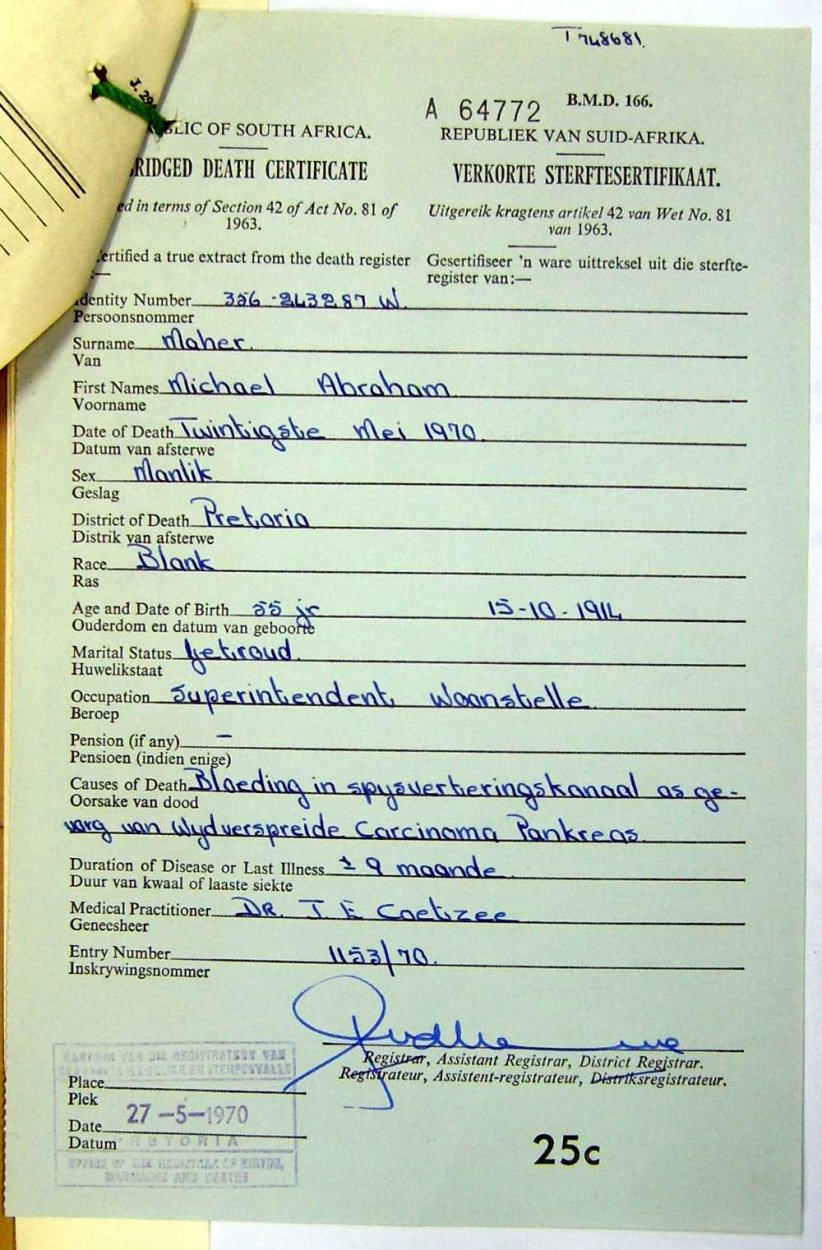 T 748681.
J. 29
A 64772 B.M.D. 166.
BLIC OF SOUTH AFRICA.
REPUBLIEK VAN SUID-AFRIKA.
RIDGED DEATH CERTIFICATE
VERKORTE STERFTESERTIFIKAAT.
ed in terms of Section 42 of Act No. 81 of
1963.
Uitgereik kragtens artikel 42 van Wet No. 81
van 1963.
ertified a true extract from the death register
:—
Gesertifiseer 'n ware uittreksel uit die sterfte-
register van:—
Identity Number 356-243287 W.
Persoonsnommer
Surname Maher.
Van
First Names Michael Abraham
Voorname
Date of Death Twintigste Mei 1970.
Datum van afsterwe
Sex Manlik
Geslag
District of Death Pretoria
Distrik van afsterwe
Race Blank
Ras
Age and Date of Birth 55 jr 15-10-1914
Ouderdom en datum van geboorte
Marital Status Getroud.
Huwelikstaat
Occupation Superintendent Woonstelle.
Beroep
Pension (if any) —
Pensioen (indien enige)
Causes of Death Bloeding in spysverteringskanaal as ge-
Oorsake van dood
van Wydverspreide Carcinoma Pankreas.
Duration of Disease or Last Illness ± 9 maande.
Duur van kwaal of laaste siekte
Medical Practitioner DR. J E Coetzee
Geneesheer
Entry Number 1153/70.
Inskrywingsnommer
Registrar, Assistant Registrar, District Registrar.
Registrateur, Assistent-registrateur, Distriksregistrateur.
KANTOOR VAN DIE REGISTRATEUR VAN
Place
Plek
27-5-1970
Date
Datum
PRETORIA
OFFICE OF THE REGISTRAR OF BIRTHS,
MARRIAGES AND DEATHS
25c